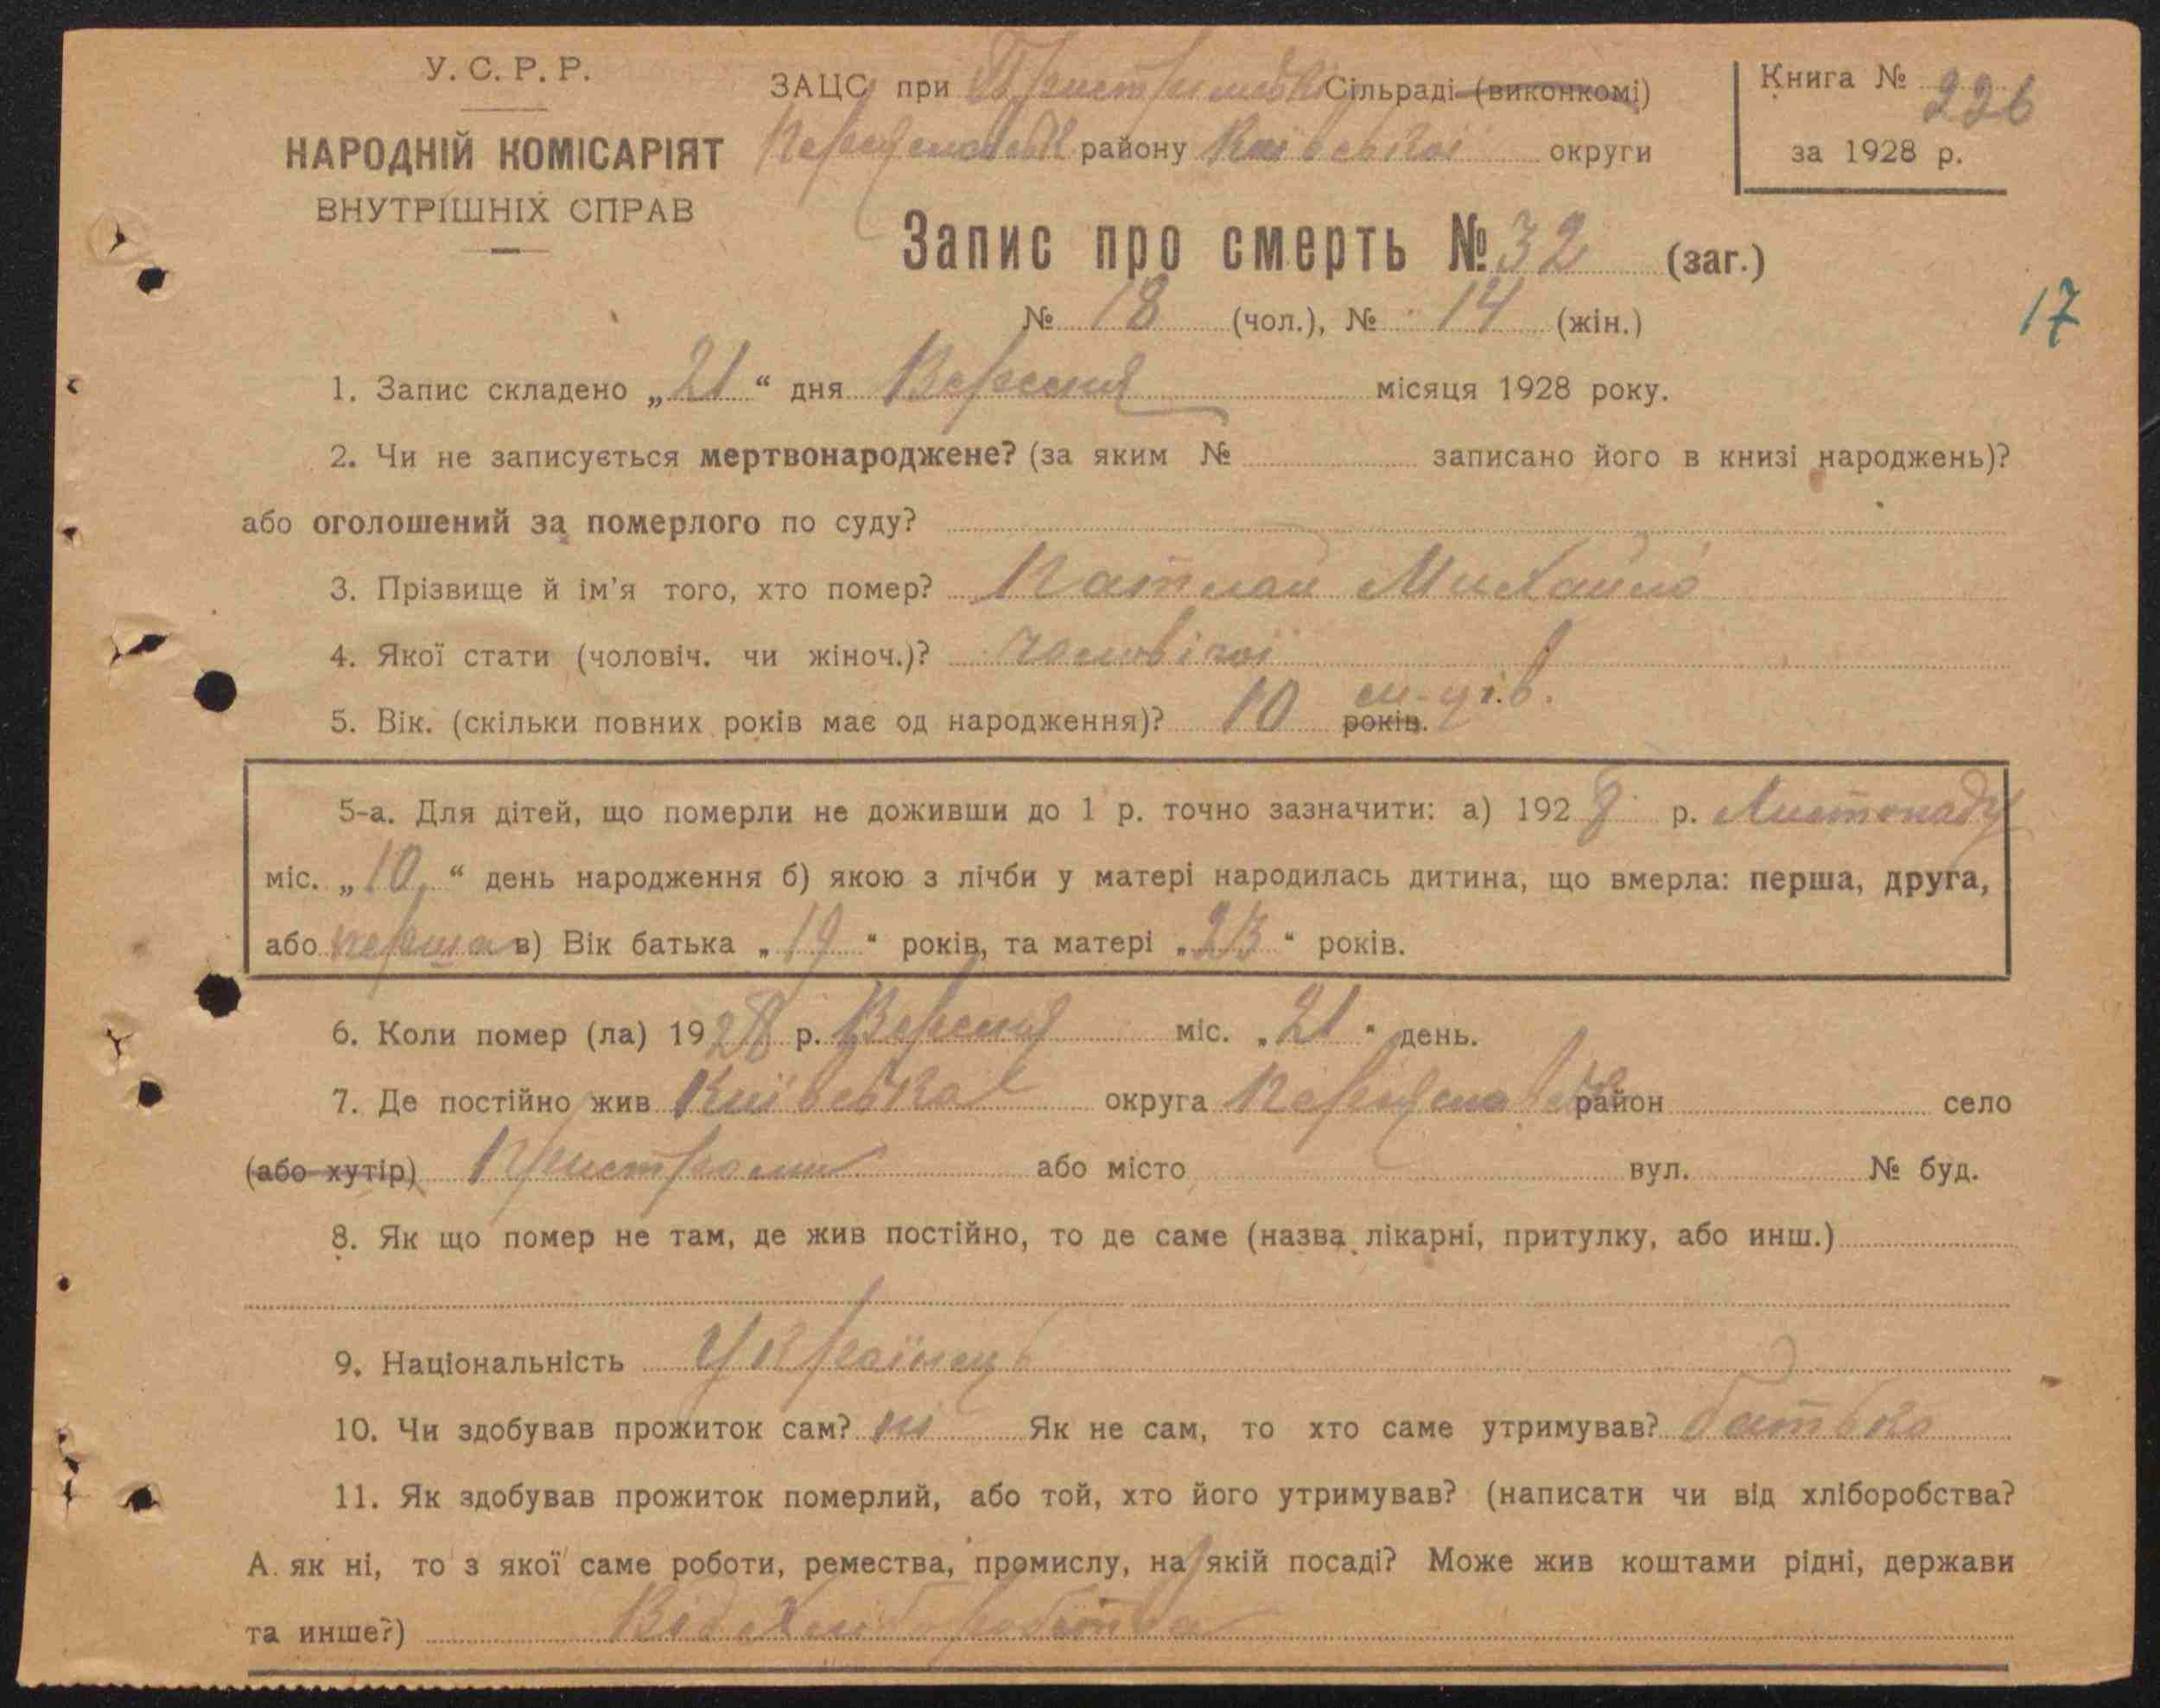 У. С. Р. Р.
НАРОДНІЙ КОМІСАРІЯТ
ВНУТРІШНІХ СПРАВ
ЗАЦС при Пристромській Сільраді (виконкомі)
району Київської округи
Книга № 226
за 1928 р.
Запис про смерть № 32 (заг.)
№ 18 (чол.), № 14 (жін.)
17
1. Запис складено „21“ дня Вересня місяця 1928 року.
2. Чи не записується мертвонароджене? (за яким № записано його в книзі народжень)?
або оголошений за померлого по суду?
3. Прізвище й ім'я того, хто помер? Михайло
4. Якої стати (чоловіч. чи жіноч.)? чоловічої
5. Вік. (скільки повних років має од народження)? 10 років.
5-а. Для дітей, що померли не доживши до 1 р. точно зазначити: а) 192 р. Листопаду
міс. „10“ день народження б) якою з лічби у матері народилась дитина, що вмерла: перша, друга,
або перша в) Вік батька „19“ років, та матері „23“ років.
6. Коли помер (ла) 1928 р. Вересня міс. „21“ день.
7. Де постійно жив Київська округа район село
(або хутір) Пристроми або місто вул. № буд.
8. Як що помер не там, де жив постійно, то де саме (назва лікарні, притулку, або инш.)
9. Національність Українець
10. Чи здобував прожиток сам? ні Як не сам, то хто саме утримував? батько
11. Як здобував прожиток померлий, або той, хто його утримував? (написати чи від хліборобства?
А як ні, то з якої саме роботи, ремества, промислу, на якій посаді? Може жив коштами рідні, держави
та инше?) Від Хліборобства